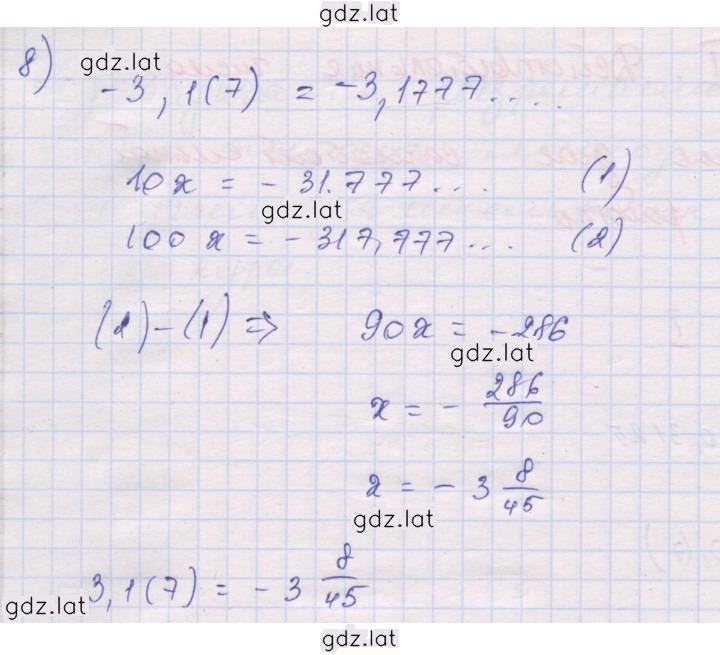 gdz.lat
8) gdz.lat
-3,1(7) = -3,1777....
10x = - 31.777... (1)
gdz.lat
100x = - 317,777... (2)
(2)-(1) ⇒ 90x = -286
gdz.lat
x = - 286/90
x = - 3 8/45
gdz.lat
3,1(7) = - 3 8/45
gdz.lat
gdz.lat